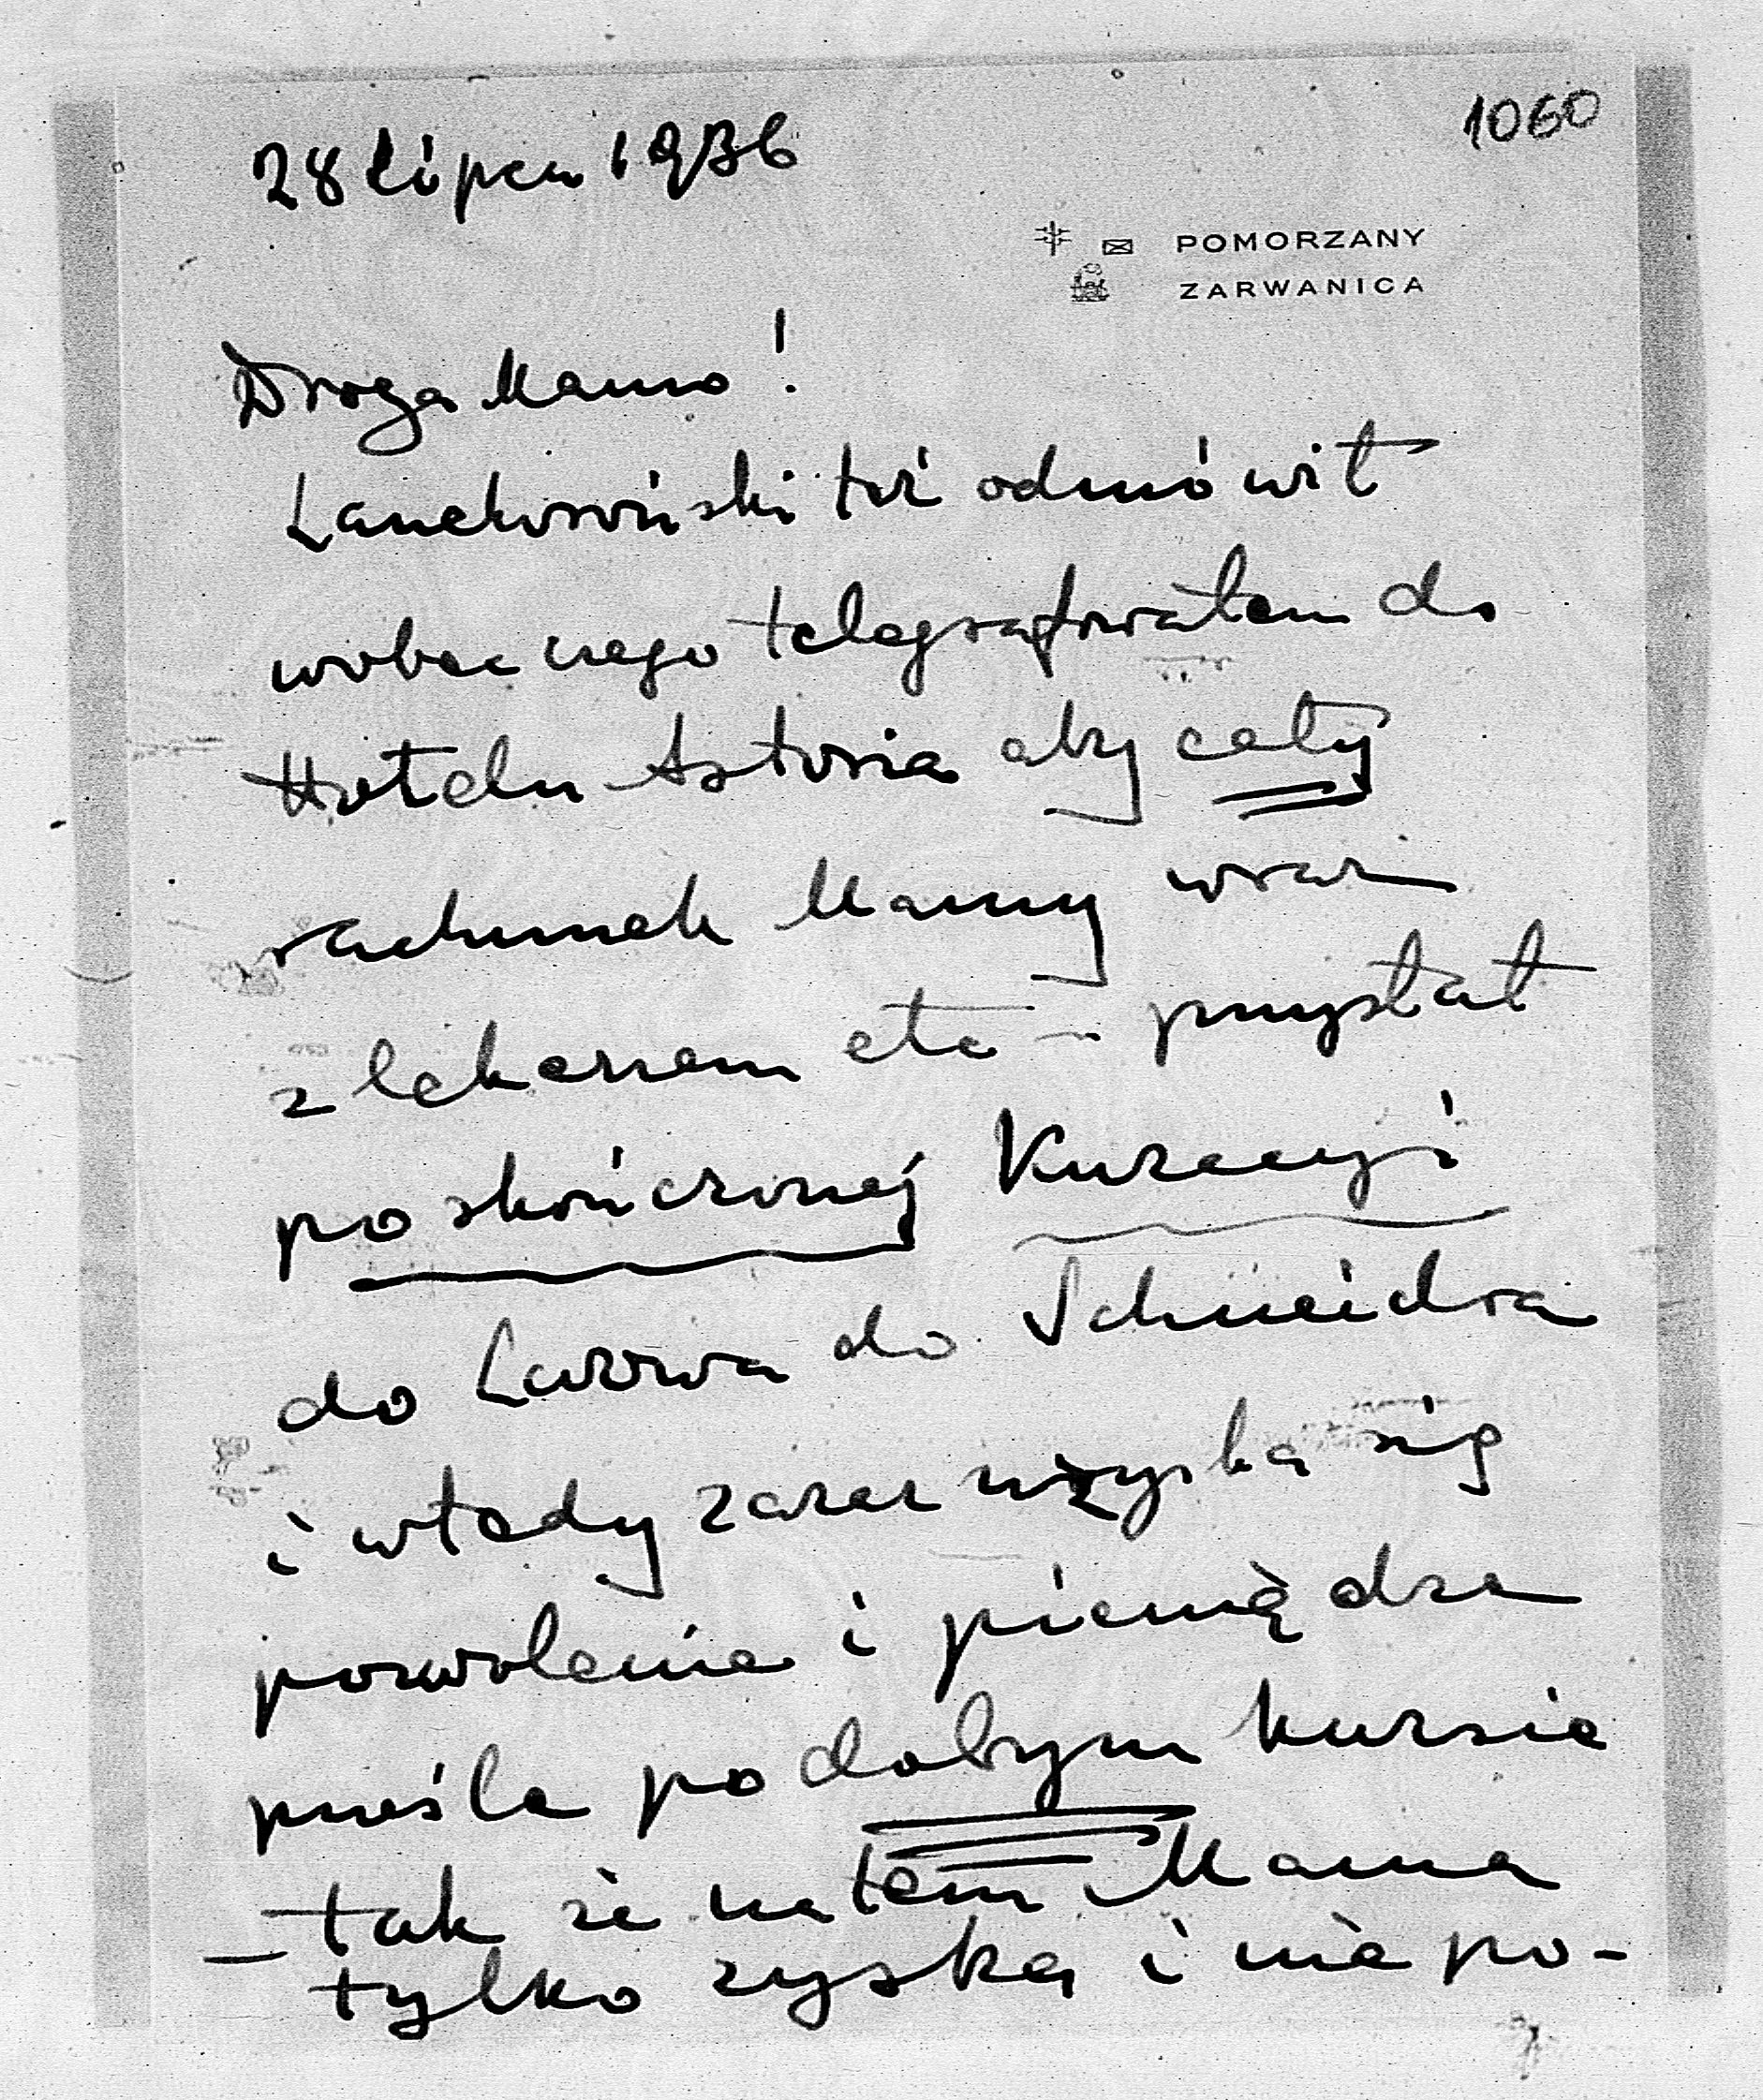 1060
28 lipca 1936
POMORZANY
ZARWANICA
Droga Mamo!
Lanckoroński też odmówił
wobec czego telegrafowałem do
Hotelu Astoria aby cały
rachunek Mamy wraz
z lekarzem etc - przysłał
po skończonej Kuracyi
do Lwowa do Schneidra
i wtedy zaraz uzyska się
pozwolenie i pieniądze
prześle po dobrym kursie
- tak że na tem Mama
tylko zyska i nie po-